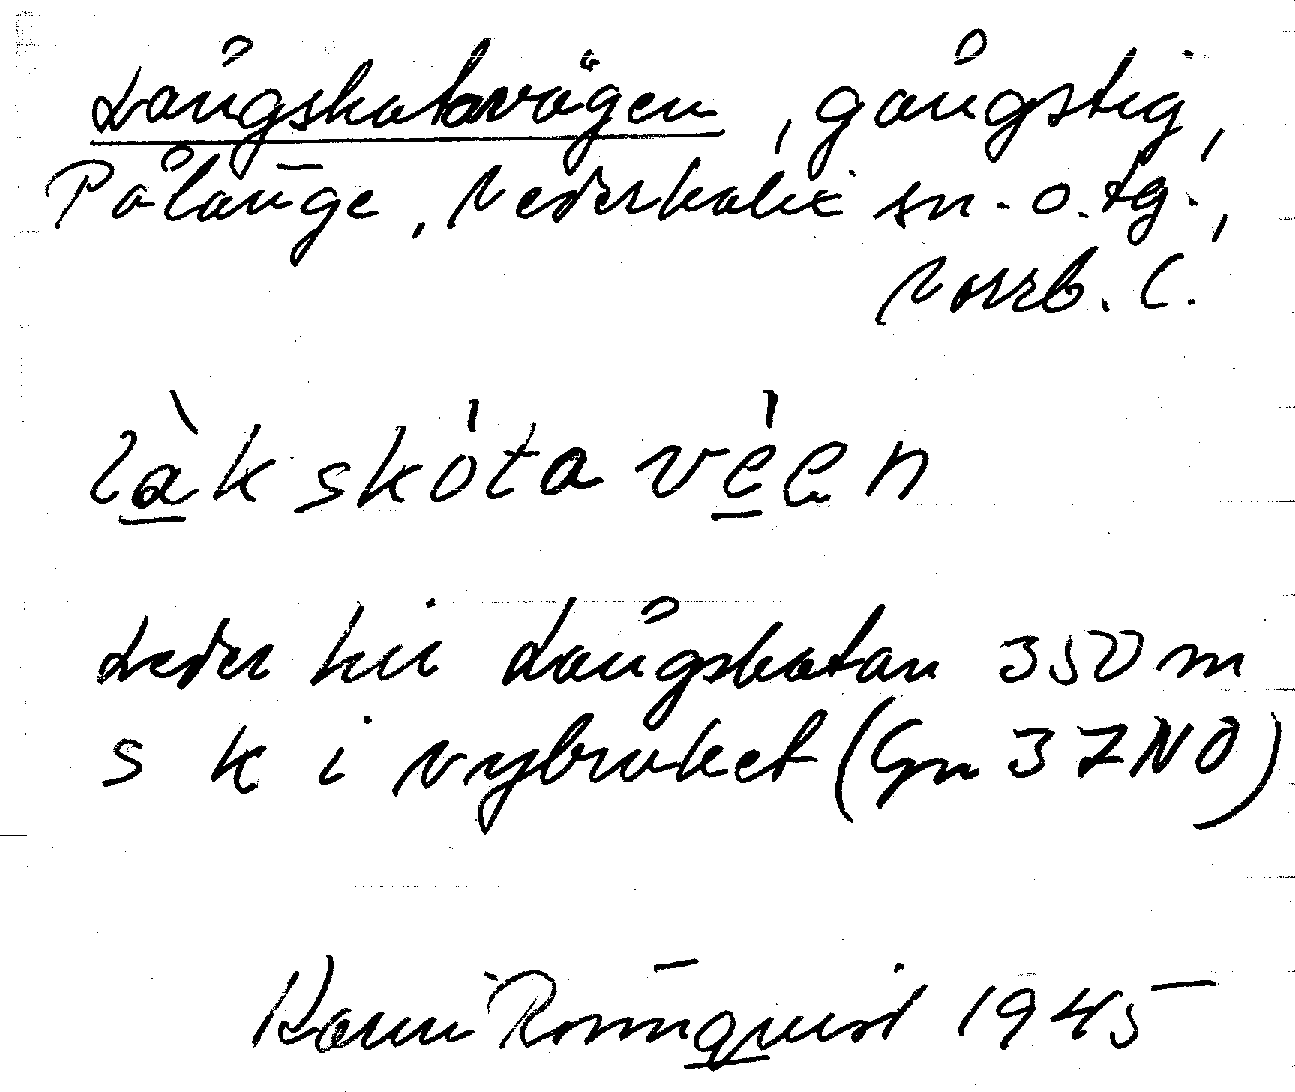 Långskatavägen, gångstig,
Pålänge, Nederkalix sn. o. tg.,
Norrb. l.
làkskótavéen
Leder till Långskatan 350 m
s k i nybruket (Gn 37NO)
Karin Rönnquist 1945